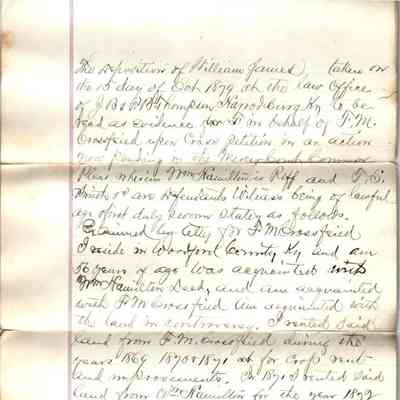 The deposition of William James, taken on
the 15 day of Oct 1879 at the law office
of J B & P B Thompson Harrodsburg Ky to be
read as evidence for & in behalf of F. M.
Crossfied upon Cross petition in an action
now pending in the Mercer Court Common
Pleas wherein Wm Hamilton is Plff and
are defendants Witness being of lawful
age first duly sworn States as follows.
Examined by Atty for F M Crossfied
I reside in Woodford County Ky and am
56 years of age was acquainted with
Wm Hamilton Decd, and am acquainted
with F M Crossfied am acquainted with
the land in controversy. I rented said
land from F. M. Crossfied during the
years 1869 1870 & 1871 at for crop rent
and improvements. In 1871 I rented said
land from Wm Hamilton for the year 1872